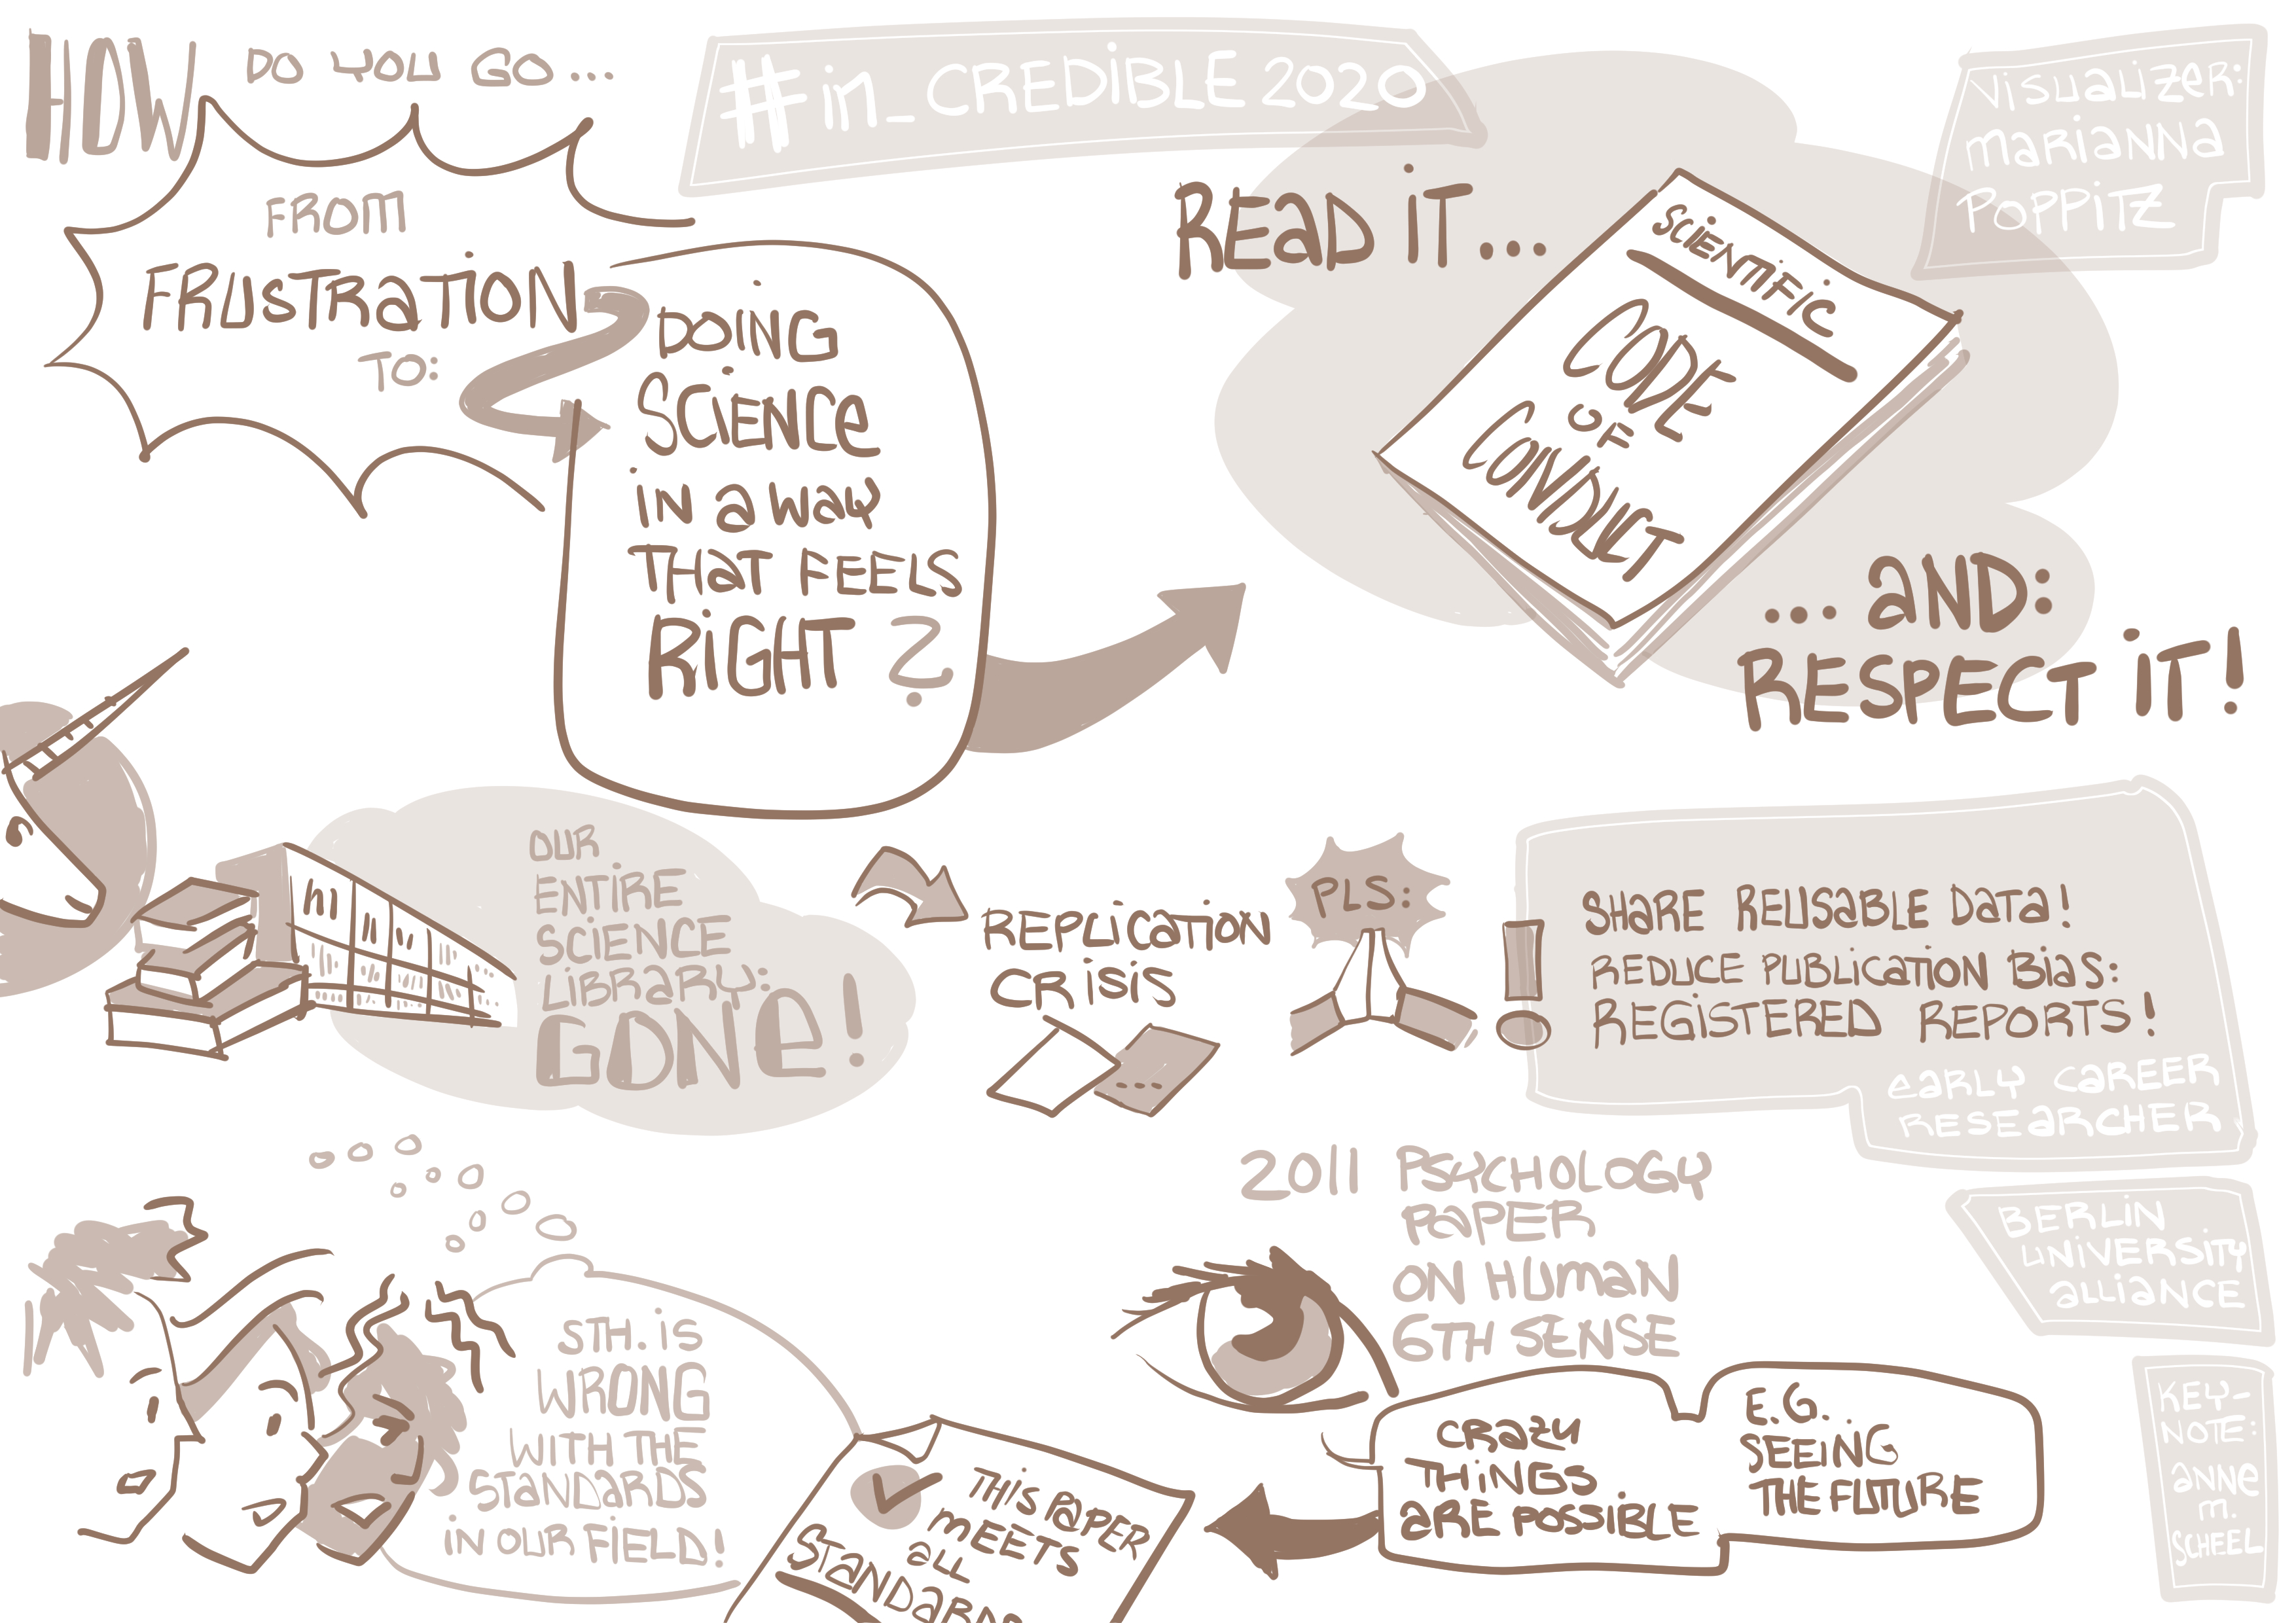 HOW DO YOU GO...
FROM
FRUSTRATION
TO:
DOING
SCIENCE
IN A WAY
THAT FEELS
RIGHT?
#in_CREDIBLE2020
VISUALIZER:
MARIANNA
POPPITZ
READ IT...
SCIENTIFIC
CODE
OF
CONDUCT
... AND:
RESPECT IT!
OUR
ENTIRE
SCIENCE
LIBRARY:
GONE!
REPLICATION
CRISIS
PLS:
SHARE REUSABLE DATA!
REDUCE PUBLICATION BIAS:
REGISTERED REPORTS!
EARLY CAREER
RESEARCHER
2011 PSYCHOLOGY
PAPER
ON HUMAN
6TH SENSE
CRAZY
THINGS
ARE POSSIBLE
E.G.
SEEING
THE FUTURE
THIS PAPER
MEETS
ALL
STANDARD
STH. IS
WRONG
WITH THE
STANDARDS
IN OUR FIELD!
BERLIN
UNIVERSITY
ALLIANCE
KEY-
NOTE:
ANNE
M.
SCHEEL